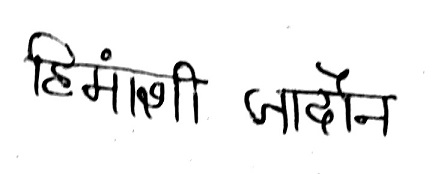 हिमांशी जादौन